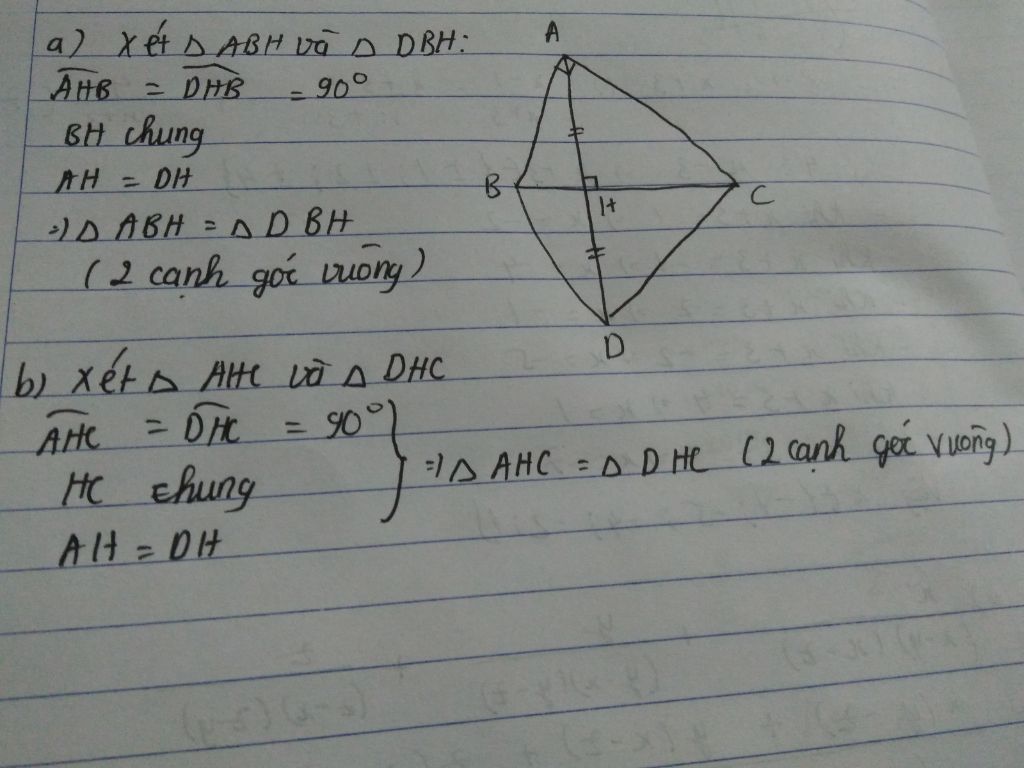 a) Xét Δ ABH và Δ DBH:
AHB = DHB = 90°
BH chung
AH = DH
=) Δ ABH = Δ DBH
(2 cạnh góc vuông)
A
B
C
H
D
b) Xét Δ AHC và Δ DHC
AHC = DHC = 90°
HC chung
AH = DH
=) Δ AHC = Δ DHC (2 cạnh góc vuông)